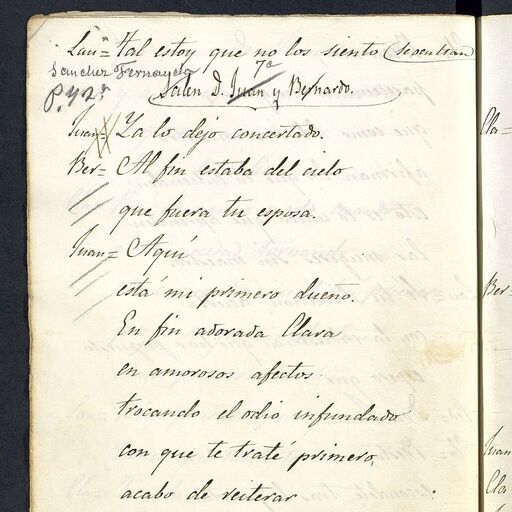 Lau= Tal estoy que no los siento (se sentran
Sanchez Fernando 7ª
P. 42ª
Salen D. Juan y Bernardo.
Juan= Ya lo dejo concertado.
Ber= Al fin estaba del cielo
que fuera tu esposa.
Juan= Aquí
esta mi primero dueño.
En fin adorada Clara
en amorosos afectos
trocando el odio infundado
con que te traté primero,
acabo de reiterar
Cla=
Ber=
Juan
Cla